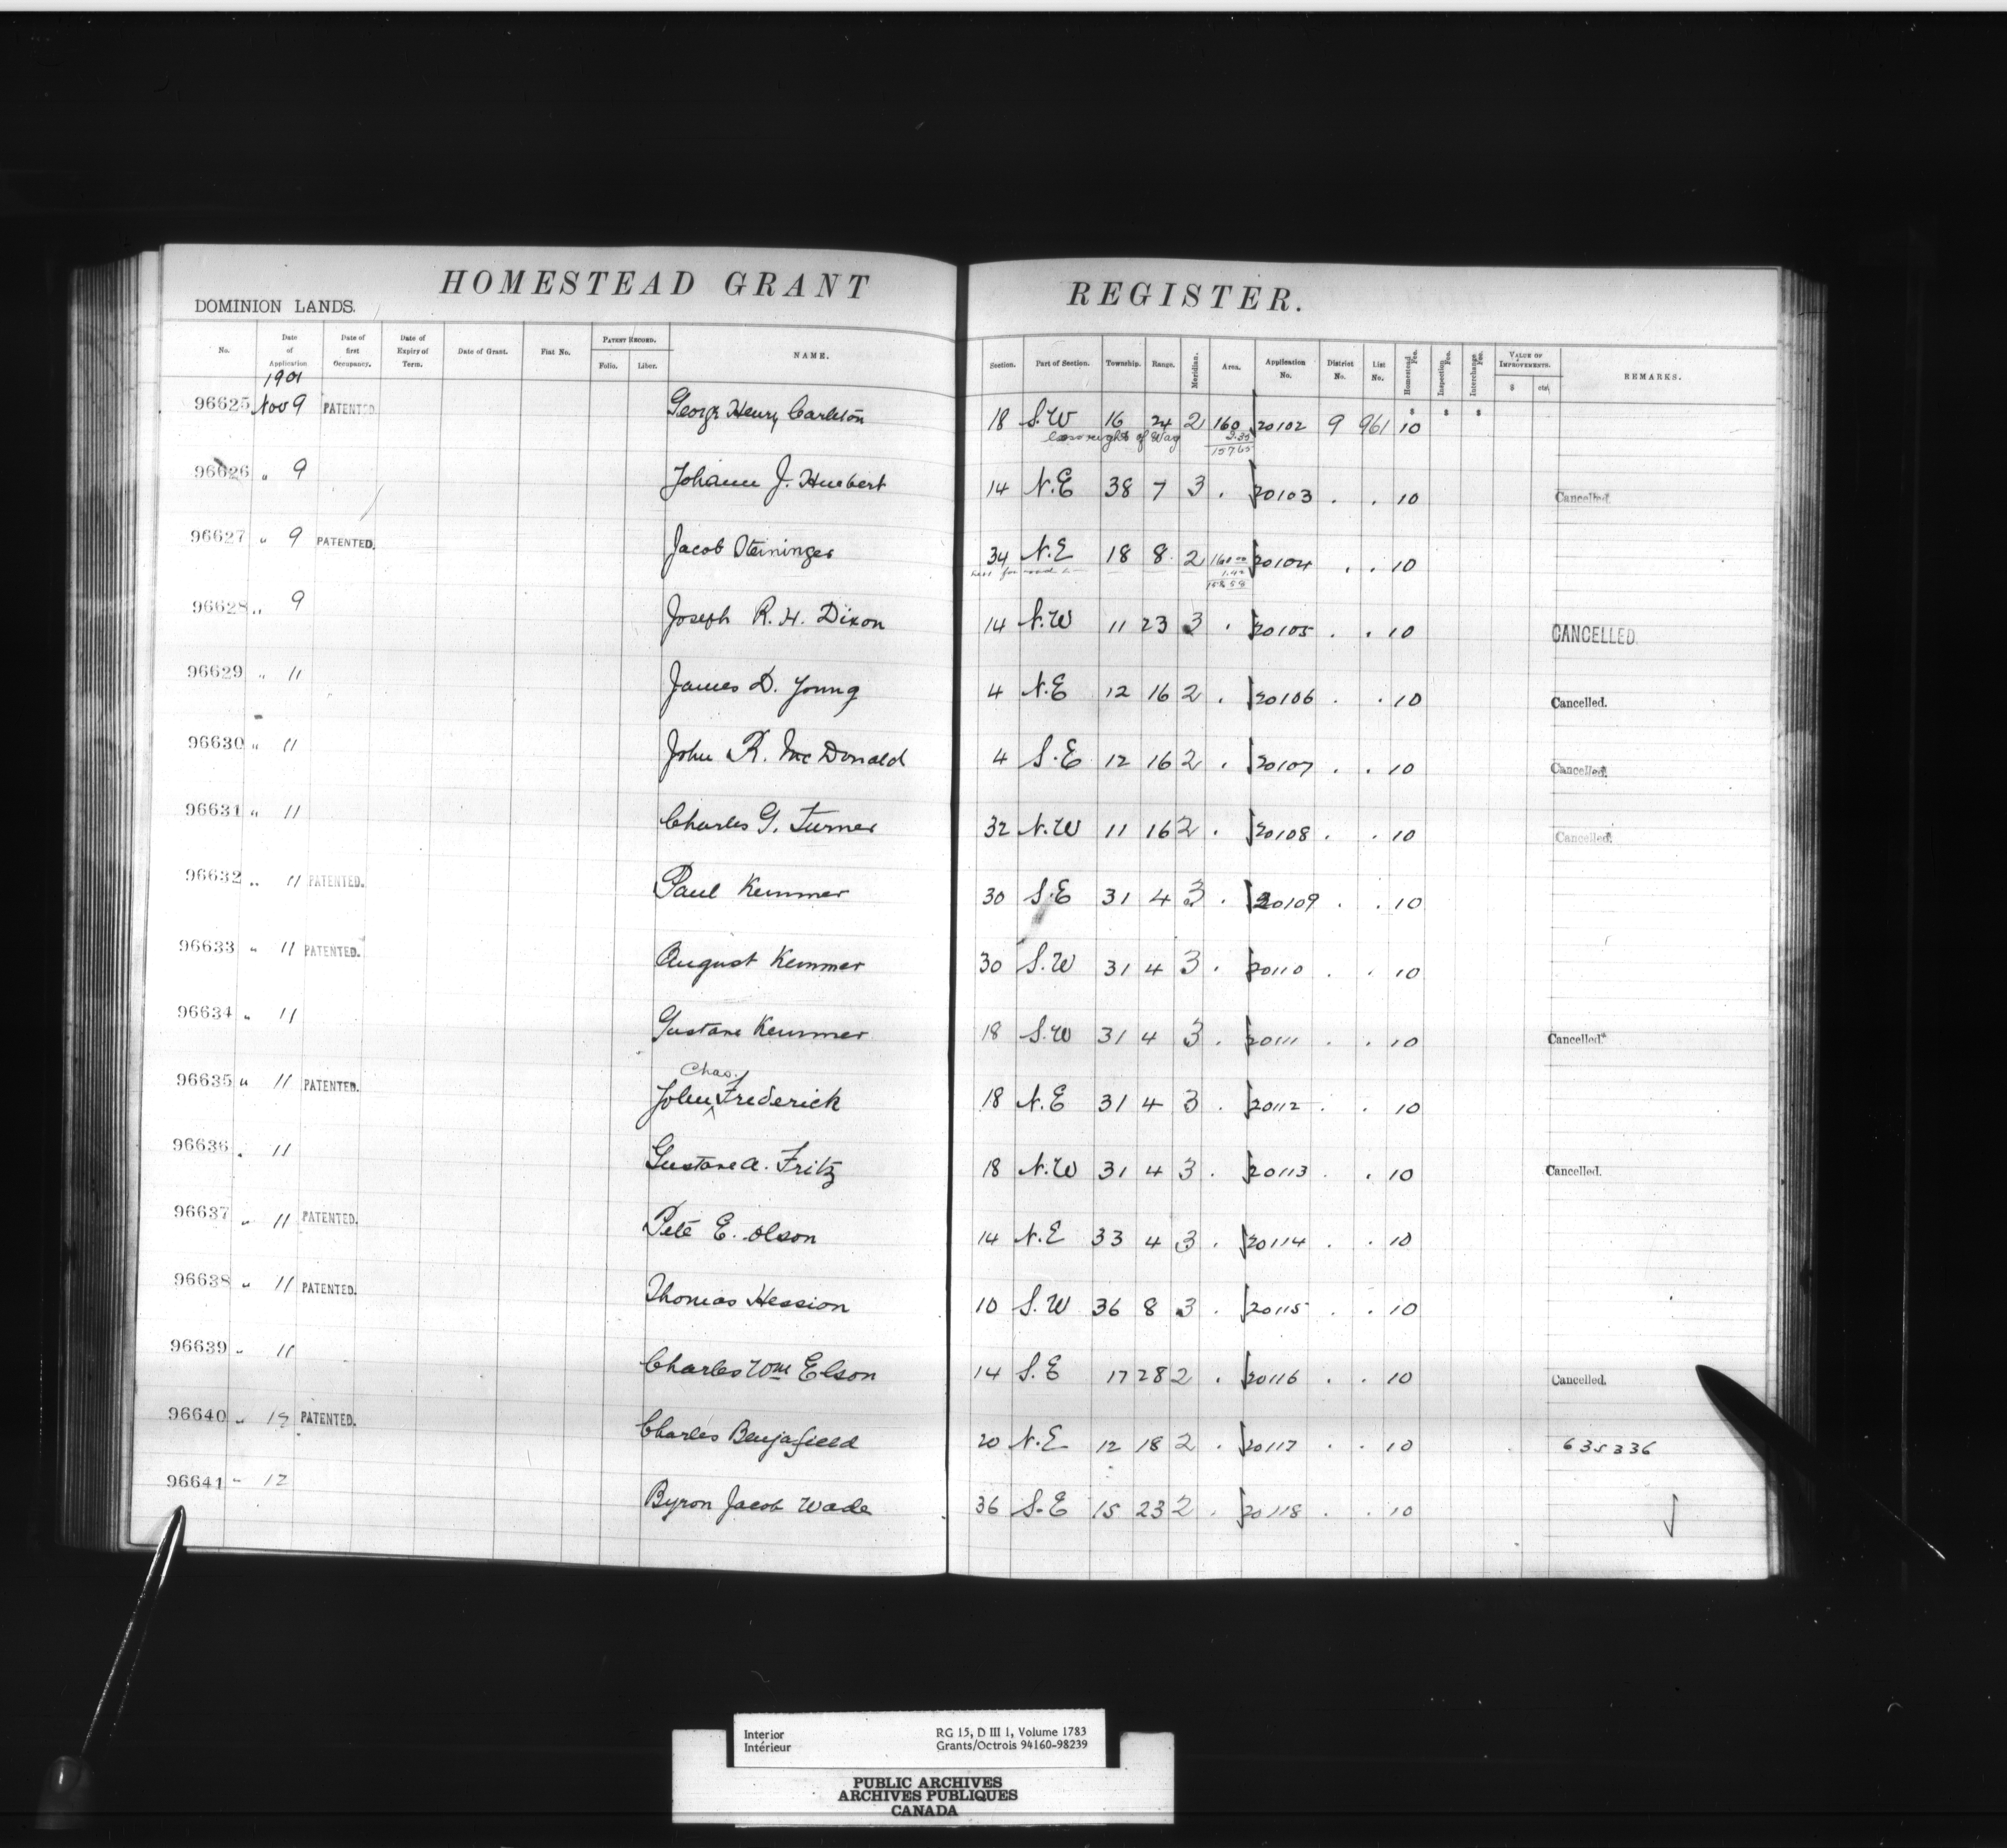 HOMESTEAD GRANT REGISTER.
DOMINION LANDS.
No. Date of Application Date of first Occupancy. Date of Expiry of Term. Date of Grant. Fiat No. PATENT RECORD. Folio. Liber. NAME. Section. Part of Section. Township. Range. Meridian. Area. Application No. District No. List No. Homestead Fee. Inspection Fee. Interchange Fee. VALUE OF IMPROVEMENTS. $ cts. REMARKS.
1901
96625 Nov 9 PATENTED George Henry Carleton 18 S.W 16 24 2 160 20102 9 961 10
less right of Way 2.35
157.65
96626 " 9 Johann J. Huebert 14 N.E 38 7 3 . 20103 . . 10 Cancelled.
96627 " 9 PATENTED. Jacob Steininger 34 N.E 18 8 2 160.00 20104 . . 10
less for road 1.42
158.58
96628 " 9 Joseph R. H. Dixon 14 N.W 11 23 3 . 20105 . . 10 CANCELLED.
96629 " 11 James D. Young 4 N.E 12 16 2 . 20106 . . 10 Cancelled.
96630 " 11 John R. McDonald 4 S.E 12 16 2 . 20107 . . 10 Cancelled.
96631 " 11 Charles G. Turner 32 N.W 11 16 2 . 20108 . . 10 Cancelled.
96632 " 11 PATENTED. Paul Kemmer 30 S.E 31 4 3 . 20109 . . 10
96633 " 11 PATENTED. August Kemmer 30 S.W 31 4 3 . 20110 . . 10
96634 " 11 Gustave Kemmer 18 S.W 31 4 3 . 20111 . . 10 Cancelled.
96635 " 11 PATENTED. John Chas. Frederick 18 N.E 31 4 3 . 20112 . . 10
96636 . 11 Gustave A. Fritz 18 N.W 31 4 3 . 20113 . . 10 Cancelled.
96637 " 11 PATENTED. Pete E. Olson 14 N.E 33 4 3 . 20114 . . 10
96638 " 11 PATENTED. Thomas Hession 10 S.W 36 8 3 . 20115 . . 10
96639 " 11 Charles Wm Elson 14 S.E 17 28 2 . 20116 . . 10 Cancelled.
96640 " 12 PATENTED. Charles Benjafield 20 N.E 12 18 2 . 20117 . . 10 635336
96641 " 12 Byron Jacob Wade 36 S.E 15 23 2 . 20118 . . 10
Interior RG 15, D III 1, Volume 1783
Intérieur Grants/Octrois 94160-98239
PUBLIC ARCHIVES
ARCHIVES PUBLIQUES
CANADA